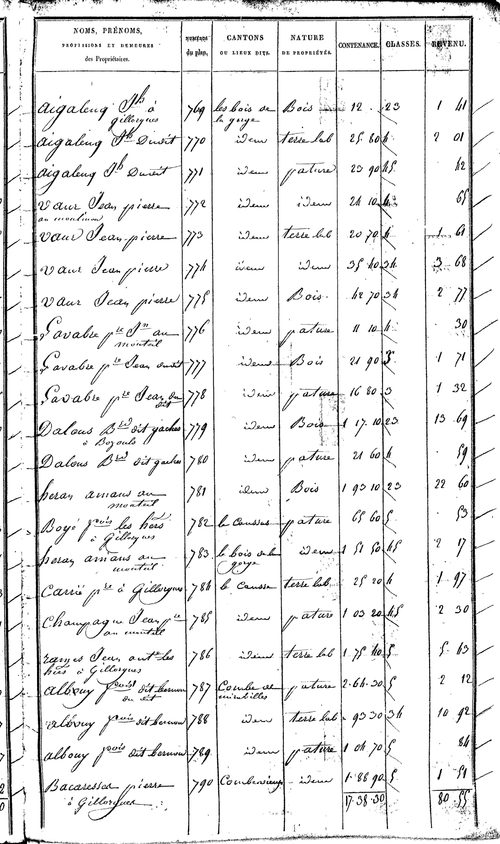 NOMS, PRÉNOMS, PROFESSIONS ET DEMEURES des Propriétaires. NUMÉROS du plan. CANTONS OU LIEUX DITS. NATURE DE PROPRIÉTÉS. CONTENANCE. CLASSES. REVENU.
aigalenq Jh à Gillorgues 769 les bois de la gorge Bois 12 23 1 41
aigalenq Jh Dudit 770 idem terre lab 25 80 4 2 01
aigalenq Jh Dudit 771 idem pature 23 90 45 42
Vaur Jean pierre au moulinou 772 idem idem 24 10 65
Vaur Jean pierre 773 idem terre lab 20 70 4 1 61
Vaur Jean pierre 774 idem idem 35 40 34 3 68
Vaur Jean pierre 775 idem Bois 42 70 34 2 77
Lavabre pre Jn au monteil 776 idem pature 11 10 4 30
Lavabre pre Jean dudit 777 idem Bois 21 90 3 1 71
Lavabre pre Jean du dit 778 idem pature 16 80 3 1 32
Dalous Brd dit gaches à Bozouls 779 idem Bois 1 17 10 23 13 69
Dalous Brd dit gaches 780 idem pature 21 60 4 59
heran amans au monteil 781 idem Bois 1 93 10 23 22 60
Boyé pois les hers à Gillorgues 782 le causse pature 65 60 5 53
heran amans au monteil 783 le bois de la gorge idem 1 51 50 45 2 17
Carrié pre à Gillorgues 784 le Causse terre lab 25 20 4 1 97
Champagne Jean pre au monteil 785 idem pature 1 03 20 45 2 30
rames Jean ante les hers à Gillorgues 786 idem terre lab 1 75 40 5 5 63
albouy pois dit bernou du dit 787 Combe de mirabilles pature 2 64 30 5 2 12
albouy pois dit bernou 788 idem terre lab 93 30 34 10 92
albouy pois dit bernou 789 idem pature 1 04 70 5 84
Bacaresses pierre à Gillorgues 790 idem 1 88 90 5 1 51
17 38 30 80 55